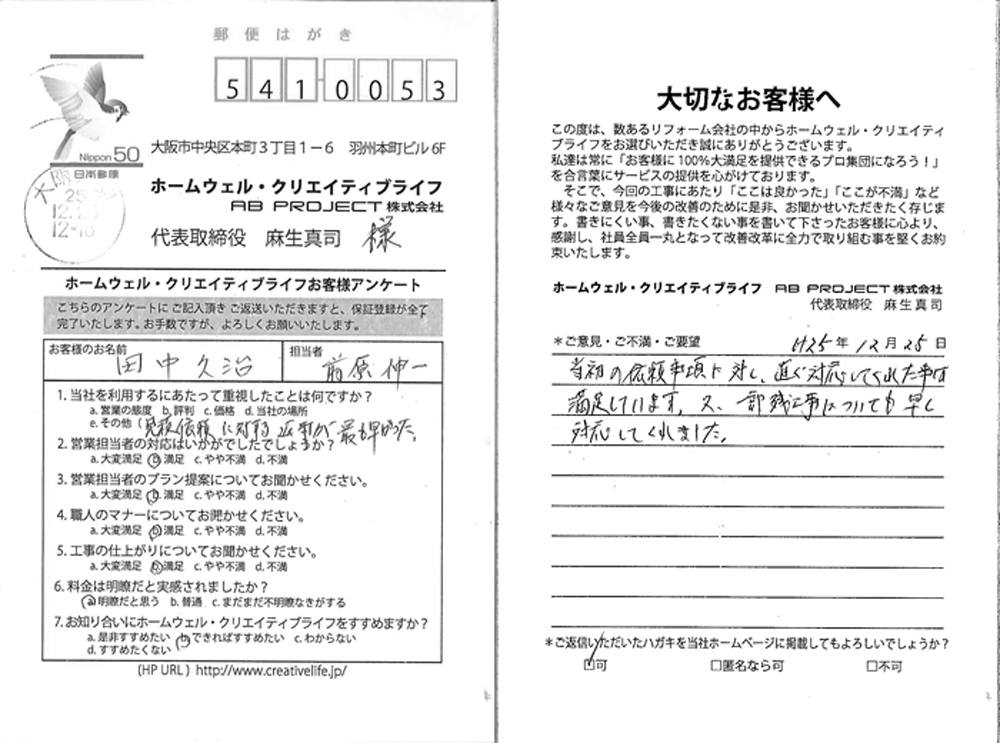 郵便はがき
5410053
Nippon 50
日本郵便
大阪市中央区本町3丁目1−6 羽州本町ビル6F
ホームウェル・クリエイティブライフ
AB PROJECT 株式会社
代表取締役 麻生真司 様
25
12-18
ホームウェル・クリエイティブライフお客様アンケート
こちらのアンケートにご記入頂きご返送いただきますと、保証登録が全て
完了いたします。お手数ですが、よろしくお願いいたします。
お客様のお名前 田中久治 担当者 前原伸一
1. 当社を利用するにあたって重視したことは何ですか？
a. 営業の態度 b. 評判 c. 価格 d. 当社の場所
e. その他（見積依頼に対する返事が最も早かった。
2. 営業担当者の対応はいかがでしたでしょうか？
a. 大変満足 b. 満足 c. やや不満 d. 不満
3. 営業担当者のプラン提案についてお聞かせください。
a. 大変満足 b. 満足 c. やや不満 d. 不満
4. 職人のマナーについてお聞かせください。
a. 大変満足 b. 満足 c. やや不満 d. 不満
5. 工事の仕上がりについてお聞かせください。
a. 大変満足 b. 満足 c. やや不満 d. 不満
6. 料金は明瞭だと実感されましたか？
a. 明瞭だと思う b. 普通 c. まだまだ不明瞭なきがする
7. お知り合いにホームウェル・クリエイティブライフをすすめますか？
a. 是非すすめたい b. できればすすめたい c. わからない
d. すすめたくない
(HP URL) http://www.creativelife.jp/
大切なお客様へ
この度は、数あるリフォーム会社の中からホームウェル・クリエイティ
ブライフをお選びいただき誠にありがとうございます。
私達は常に「お客様に100%大満足を提供できるプロ集団になろう！」
を合言葉にサービスの提供を心がけております。
そこで、今回の工事にあたり「ここは良かった」「ここが不満」など
様々なご意見を今後の改善のために是非、お聞かせいただきたく存じま
す。書きにくい事、書きたくない事を書いて下さったお客様に心より、
感謝し、社員全員一丸となって改善改革に全力で取り組む事を堅くお約
束いたします。
ホームウェル・クリエイティブライフ AB PROJECT 株式会社
代表取締役 麻生真司
＊ご意見・ご不満・ご要望 H25年12月25日
当初の依頼事項に対し、直ぐ対応してくれた事は
満足しています。又、一部残工事についても早く
対応してくれました。
＊ご返信いただいたハガキを当社ホームページに掲載してもよろしいでしょうか？
☑可 □匿名なら可 □不可